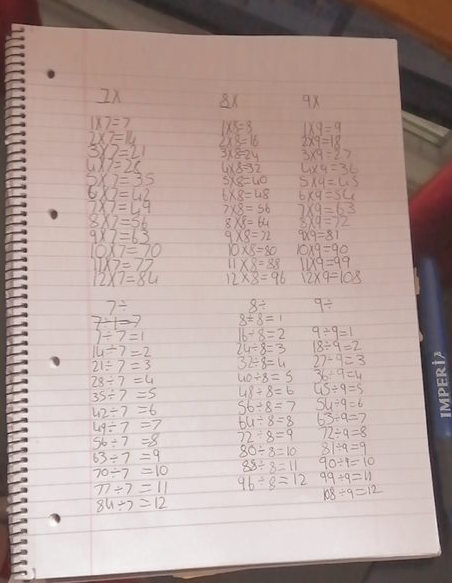 7X
1X7=7
2X7=14
3X7=21
4X7=28
5X7=35
6X7=42
7X7=49
8X7=56
9X7=63
10X7=70
11X7=77
12X7=84
8X
1X8=8
2X8=16
3X8=24
4X8=32
5X8=40
6X8=48
7X8=56
8X8=64
9X8=72
10X8=80
11X8=88
12X8=96
9X
1X9=9
2X9=18
3X9=27
4X9=36
5X9=45
6X9=54
7X9=63
8X9=72
9X9=81
10X9=90
11X9=99
12X9=108
7÷
7÷1=7
7÷7=1
14÷7=2
21÷7=3
28÷7=4
35÷7=5
42÷7=6
49÷7=7
56÷7=8
63÷7=9
70÷7=10
77÷7=11
84÷7=12
8÷
8÷8=1
16÷8=2
24÷8=3
32÷8=4
40÷8=5
48÷8=6
56÷8=7
64÷8=8
72÷8=9
80÷8=10
88÷8=11
96÷8=12
9÷
9÷9=1
18÷9=2
27÷9=3
36÷9=4
45÷9=5
54÷9=6
63÷9=7
72÷9=8
81÷9=9
90÷9=10
99÷9=11
108÷9=12
IMPERIA